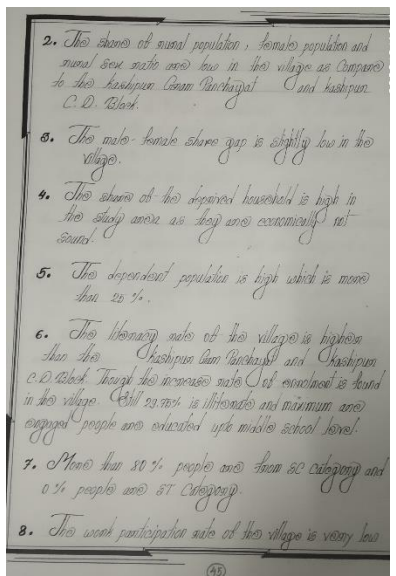 2. The share of rural population, female population and
rural sex ratio are low in the village as compare
to the Kashipur Gram Panchayat and Kashipur
C.D. Block.
3. The male-female share gap is slightly low in the
village.
4. The share of the deprived household is high in
the study area as they are economically not
sound.
5. The dependent population is high which is more
than 25 %.
6. The literacy rate of the village is higher
than the Kashipur Gam Panchayat and Kashipur
C.D. Block. Though the increase rate of enrolment is found
in the village. Still 29.75% is illiterate and maximum are
engaged people are educated upto middle school level.
7. More than 80% people are from SC category and
0% people are ST Category.
8. The work participation rate of the village is very low
45